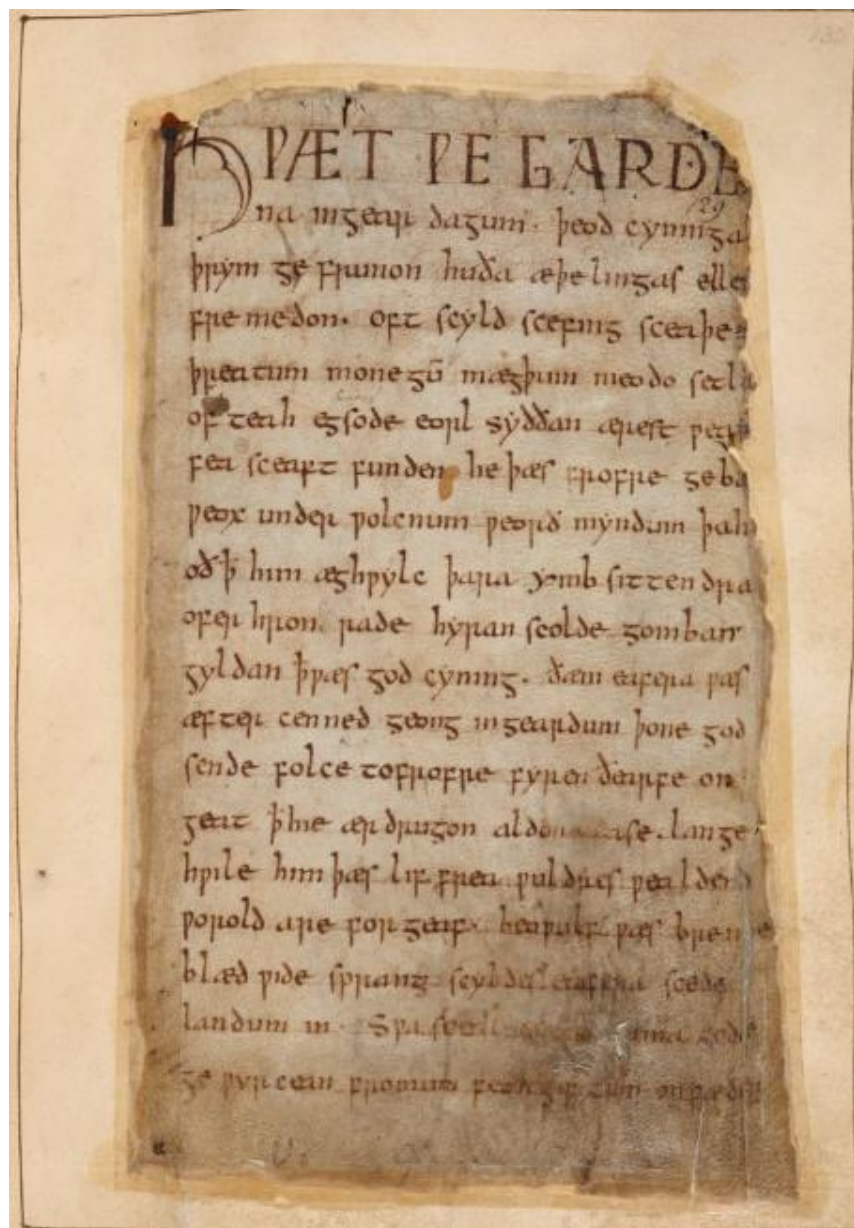 HǷÆT ǷE GARDE
na ingear dagum · þeod cyninga
þrym ge frunon huða æþelingas elle
fre medon. oft scyld scefing sceaþe
þreatum monegū mægþum meodo setla
of teah egsode eorl syððan ærest ƿear
fea sceaft funden he þæs frofre geba
ƿeox under ƿolcnum ƿeorð myndum þah
oð ꝥ him æghƿylc þara ymb sittendra
ofer hron rade hyran scolde gomban
gyldan ꝥ ƿæs god cyning. ðæm eafera ƿæs
æfter cenned geong ingeardum þone god
sende folce tofrofre fyren ðearfe on
geat ꝥ hie ær drugon aldor ase. lange
hƿile him þæs lif frea ƿuldres ƿealdend
ƿorold are for geaf. beoƿulf ƿæs breme
blæd ƿide sprang scyldes eafera scede
landum in. Sƿa guma gode
ge ƿyrcean fromum feoh giftum on fæder
129
130